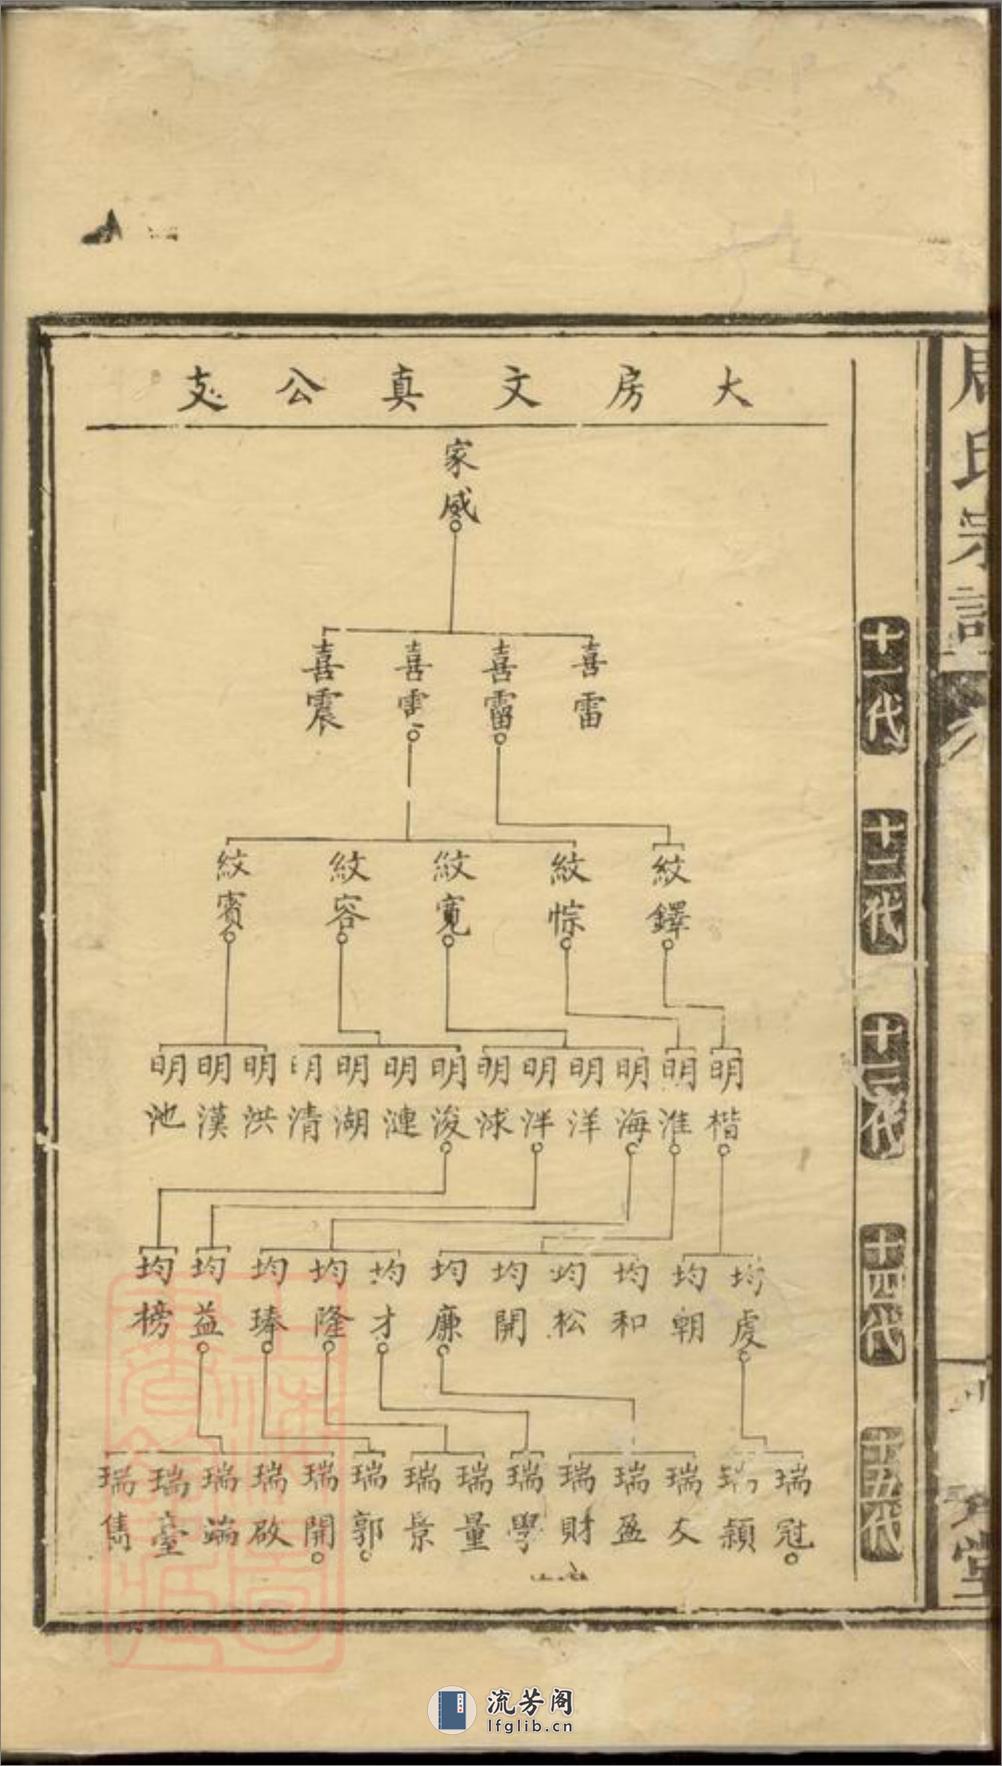 大房文真公支
周氏宗譜
十一代
十二代
十三代
十四代
十五代
家威
喜雷
喜雷
喜震
紋鐸
紋悰
紋寬
紋容
紋賓
明楷
明淮
明海
明洋
明泮
明球
明浚
明漣
明湖
明清
明洪
明漢
明池
均虔
均朝
均和
均松
均開
均廉
均才
均隆
均瑧
均益
均榜
瑞冠
瑞穎
瑞友
瑞盈
瑞財
瑞學
瑞量
瑞景
瑞郭
瑞開
瑞啟
瑞端
瑞臺
瑞雋
堂
流芳阁
lfglib.cn